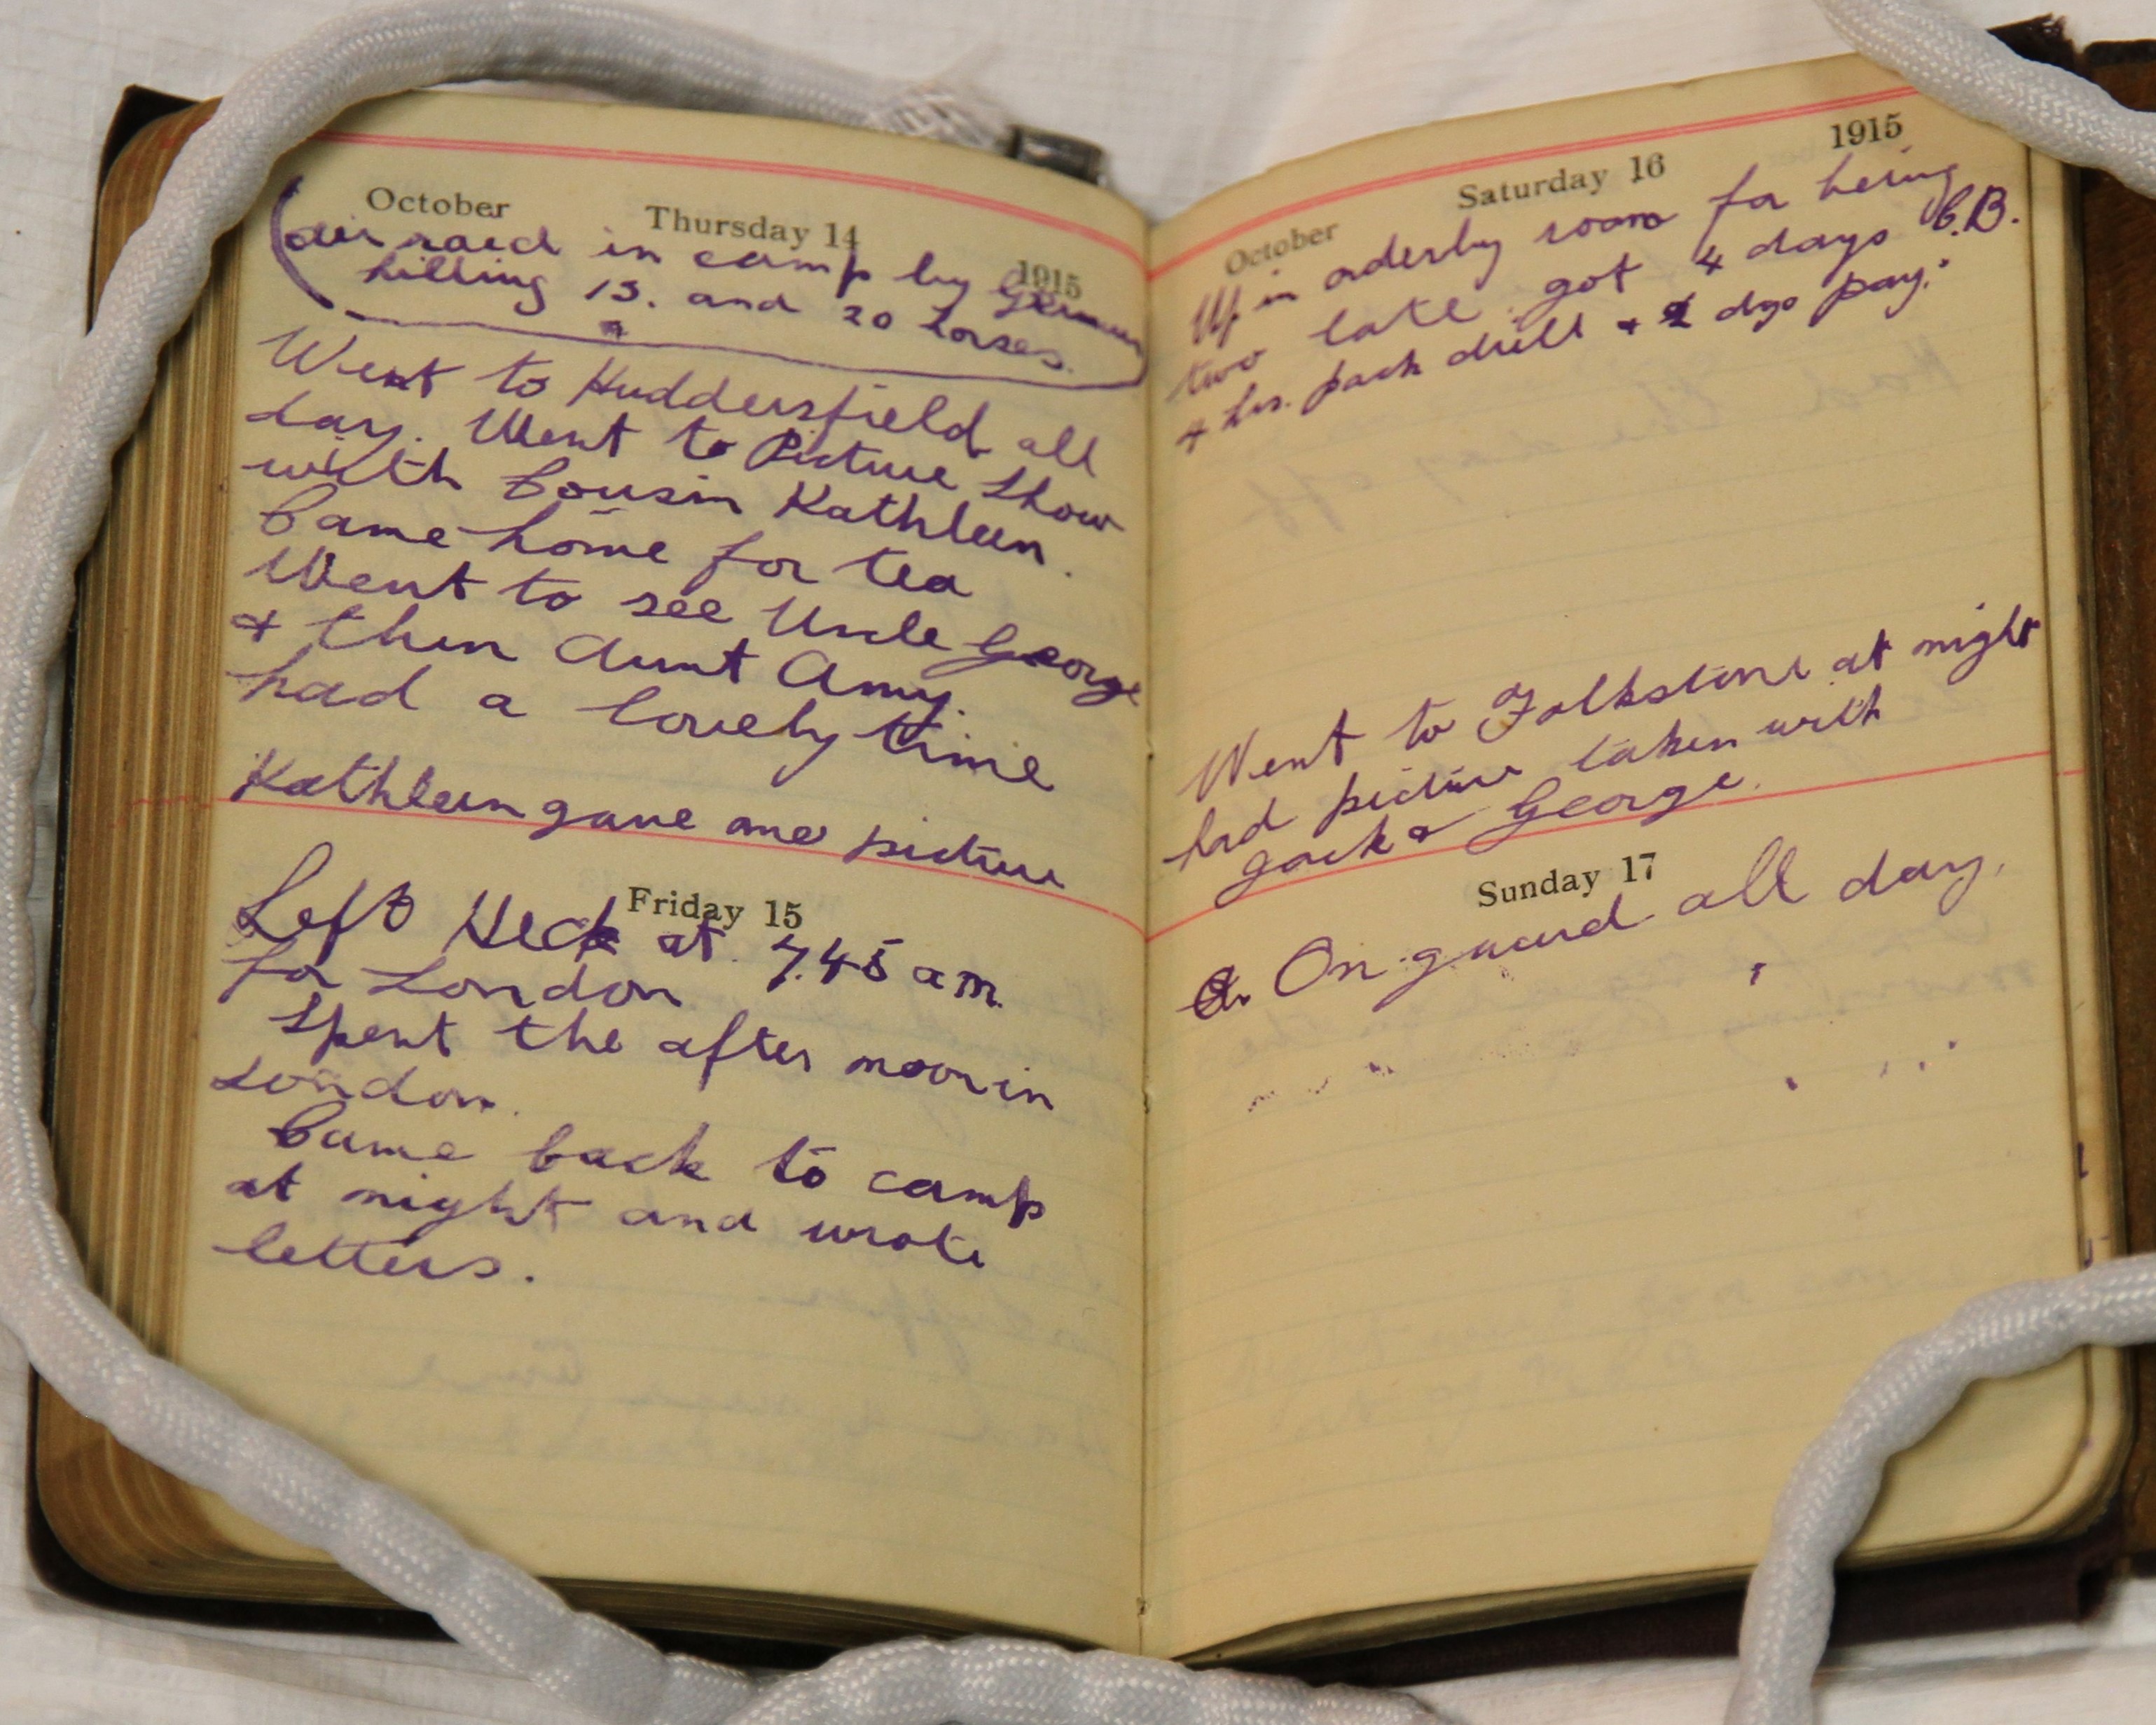 October Thursday 14 1915
air raid in camp by German
killing 13. and 20 horses.
Went to Huddersfield all
day. Went to Picture Show
with Cousin Kathleen.
Came home for tea
Went to see Uncle George
+ then Aunt Amy.
had a lovely time
Kathleen gave me picture
Friday 15
Left Heck at 7.45 am.
for London
Spent the after noon in
London.
Came back to camp
at night and wrote
letters.
October Saturday 16 1915
Up in orderly room for being
two late. got 4 days C.B.
4 hrs. pack drill + dys pay.
Went to Folkstone at night
had picture taken with
Jack & George.
Sunday 17
On guard all day.